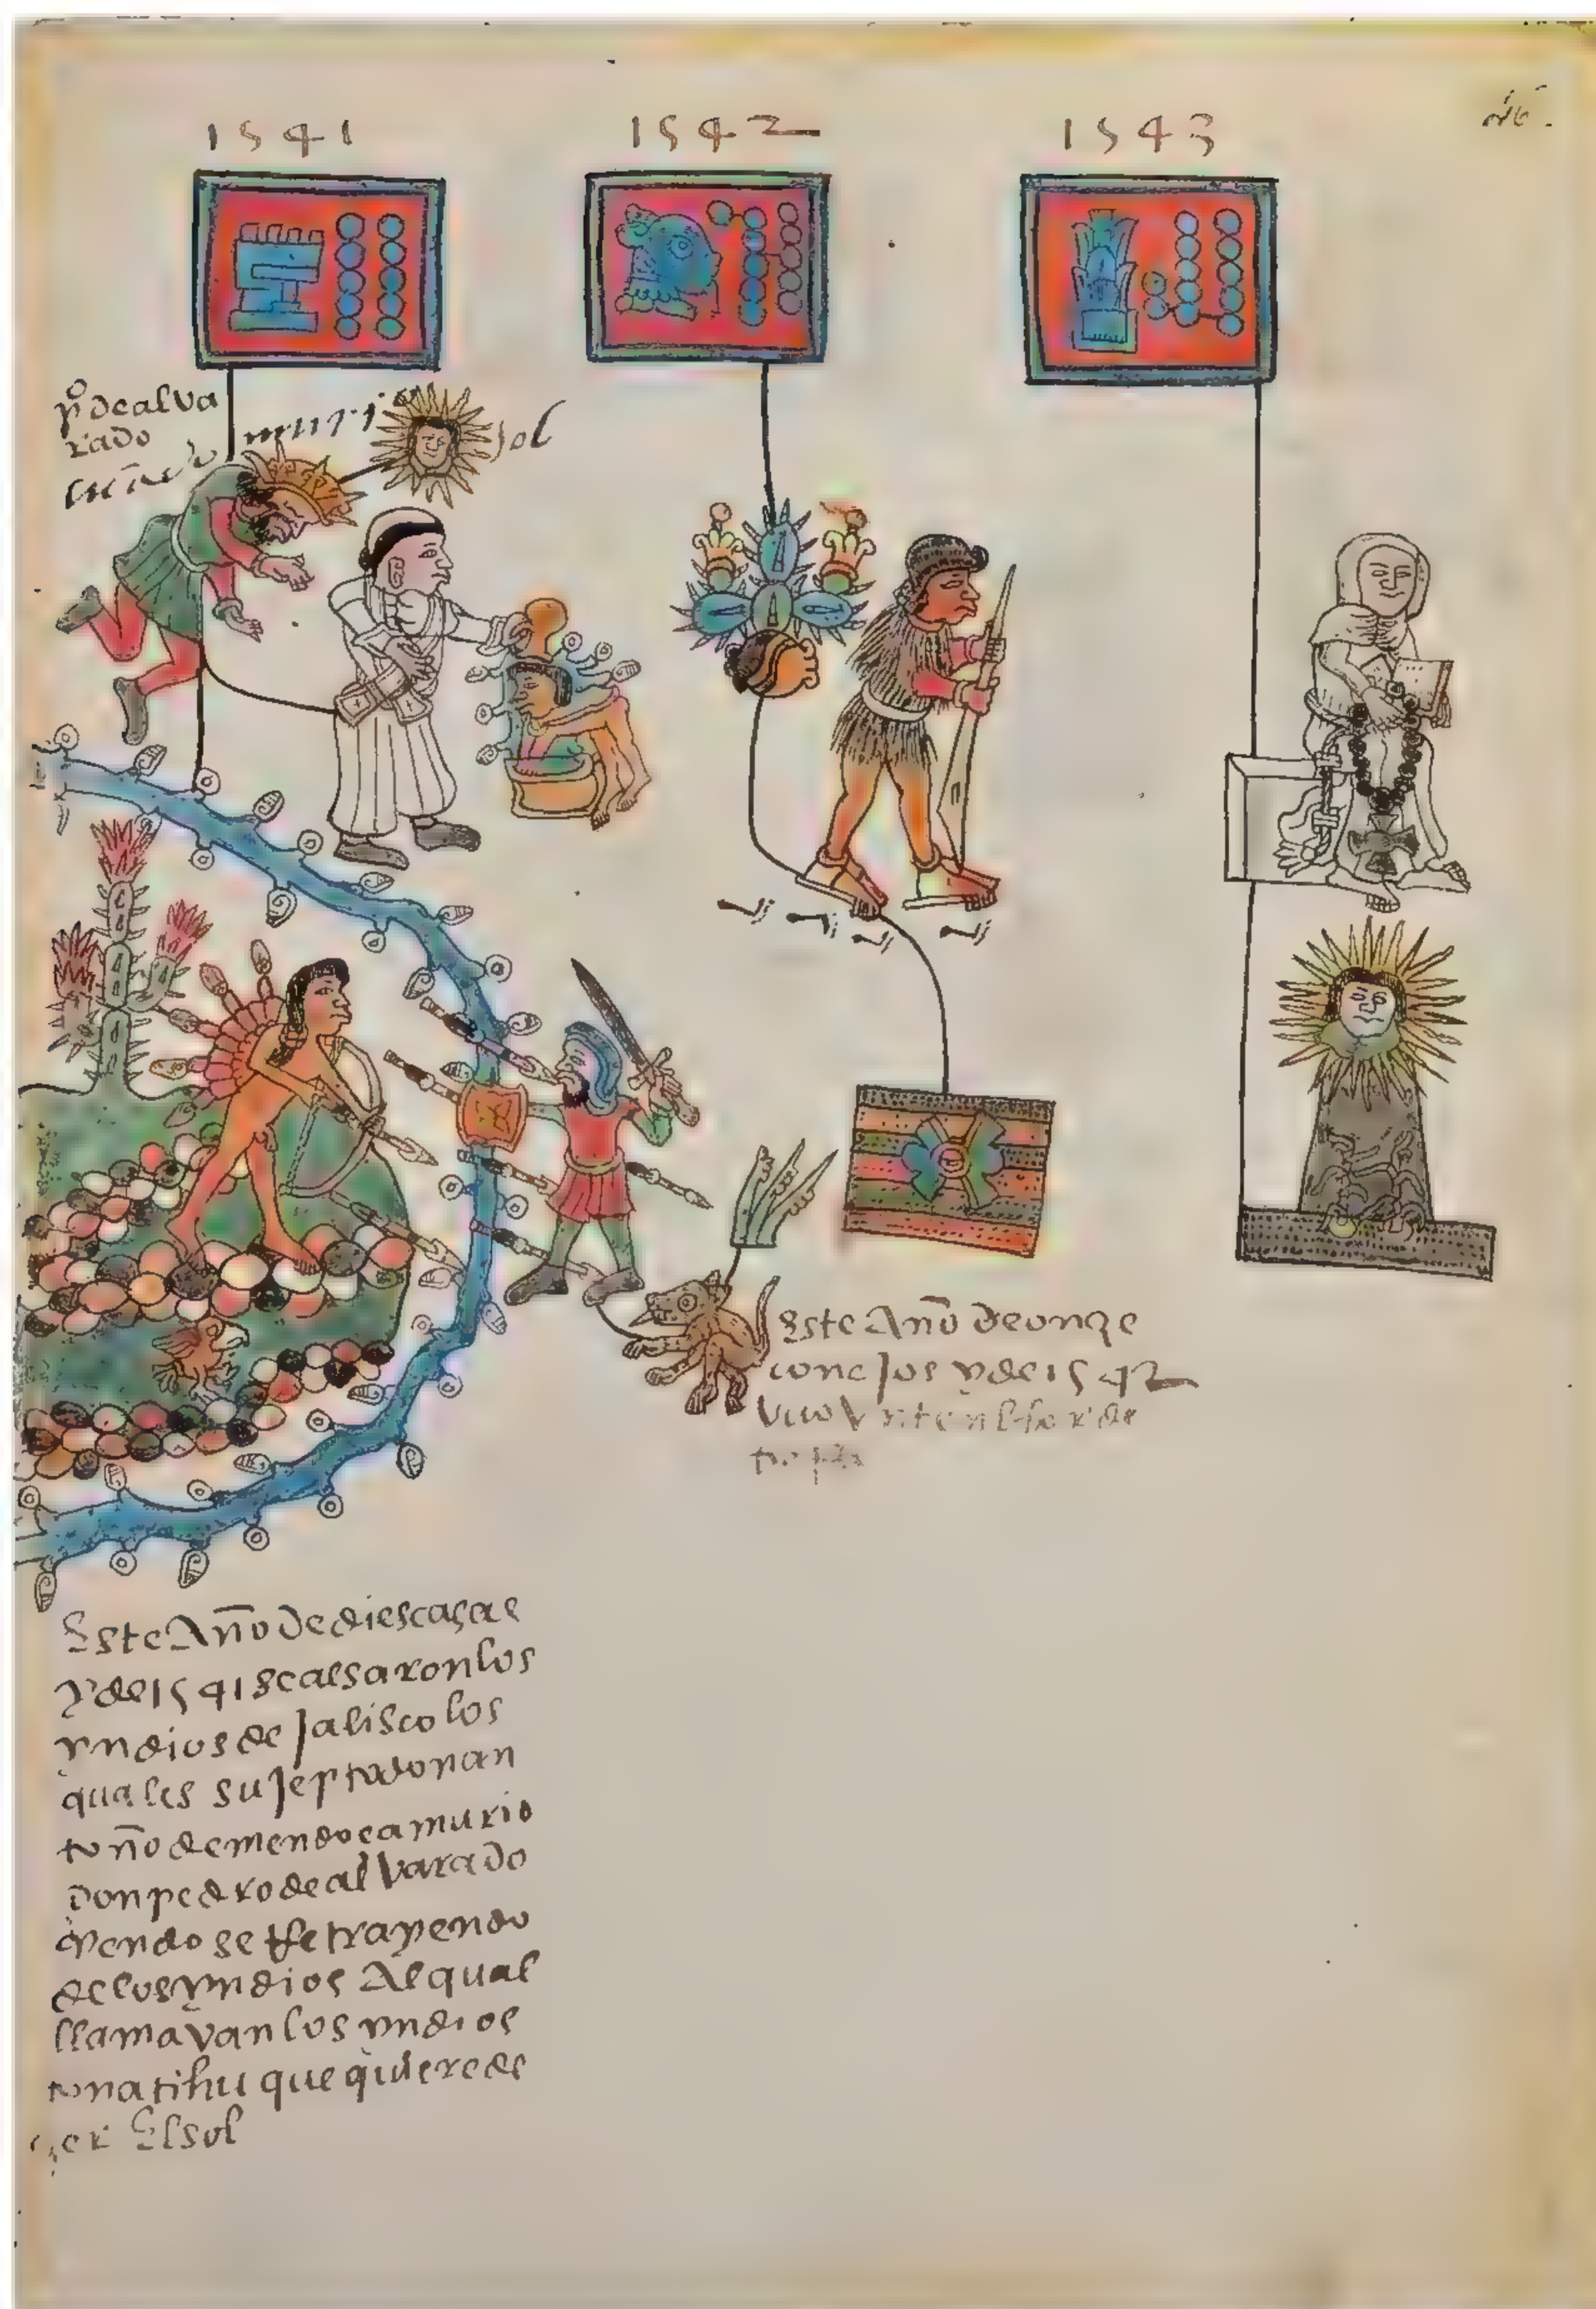 1541
1542
1543
po de alva
rado
murio
sol
Este Año de onze
conejos y de 1542
uvo un tenblor de
Este Año de dies casas
y de 1541 se alsaron los
yndios de jalisco los
quales sujepto don an
to nño de mendoca murio
don pedro de alvarado
yendo se retrayendo
de los yndios Al qual
llamavan los yndios
tonatihu que quiere de
zer El sol